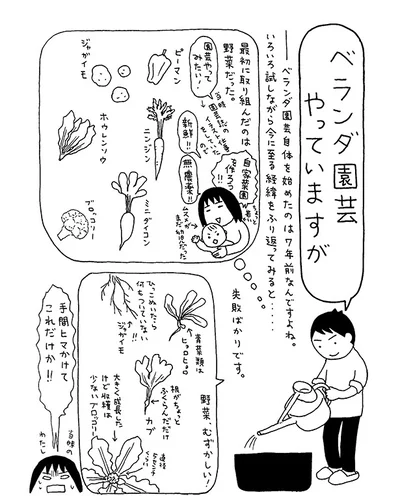 ベランダ園芸
やっていますが
――ベランダ園芸自体を始めたのは7年前なんですよね。
いろいろ試しながら今に至る経緯をふり返ってみると・・・・
失敗ばかりです。
最初に取り組んだのは
野菜だった。
園芸やって
みたい!
当時
園芸誌の仕事
イラスト
新鮮!!
無農薬!!
自家菜園
を作ろう!!
ちょっと
若い
ムスメが
まだ幼児だった
ピーマン
ジャガイモ
ニンジン
ホウレンソウ
ミニダイコン
ブロッコリー
野菜、むずかしい!
青菜類は
ヒョロヒョロ
ひっこぬいたら
何もついていない
ジャガイモ
根がちょっと
ふくらんだだけ
カブ
大きく成長した
けど収穫は
少ないブロッコリー
直径
くらい
手間ヒマかけて
これだけか!!
当時の
わたし